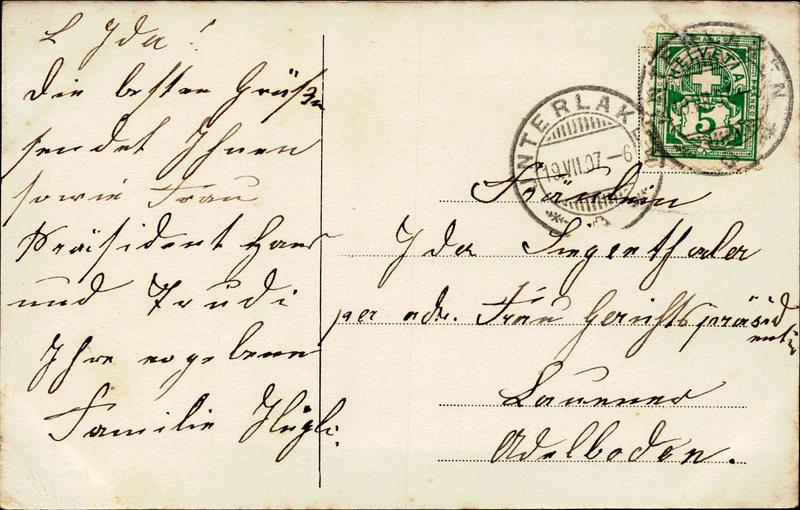 L Ida!
Die besten Grüße
sendet Ihnen
sowie Frau
Präsident Hans
und Trudi
Ihre ergebene
Familie Hügli.
FRANCO
HELVETIA
5
INTERLAKEN
19.VII.07.–6
Fräulein
Ida Siegenthaler
per adr. Frau Gerichtspräsid
entin
Lauener
Adelboden.